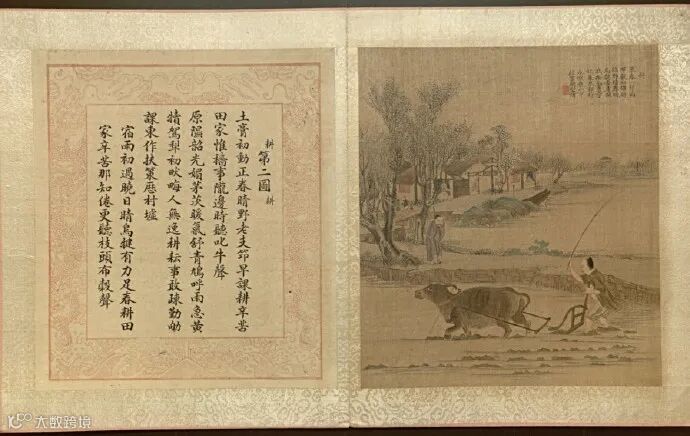 耕
第二圖
耕
土膏初動正春晴野老支筇早課耕辛苦
田家惟穡事隴邊時聽叱牛聲
原隰韶光媚茅茨暖氣舒青鳩呼雨急黃
犢駕犂初畎畮人無逸耕耘事敢疎勤劬
課東作扶策歷村墟
宿雨初過曉日晴烏犍有力足春耕田
家辛苦那知倦更聽枝頭布穀聲
大数跨境